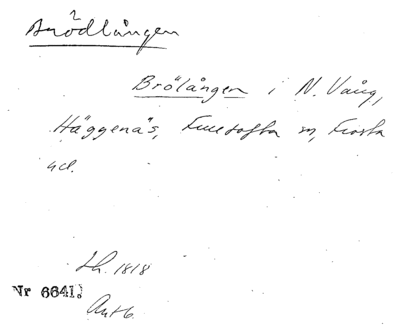 Brödlången
Brölången i N. Vång,
Häggenäs, Fulltofta sn, Frosta
hd.
Lh. 1818
Nr 6641.
Antb.